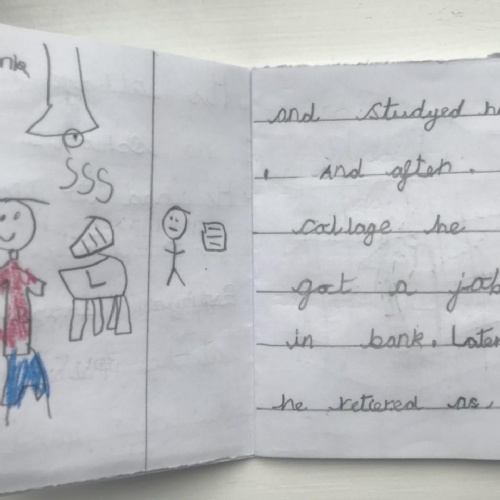 SSS
L
and studied
. And after.
collage he
got a job
in bank. Later
he retiered as